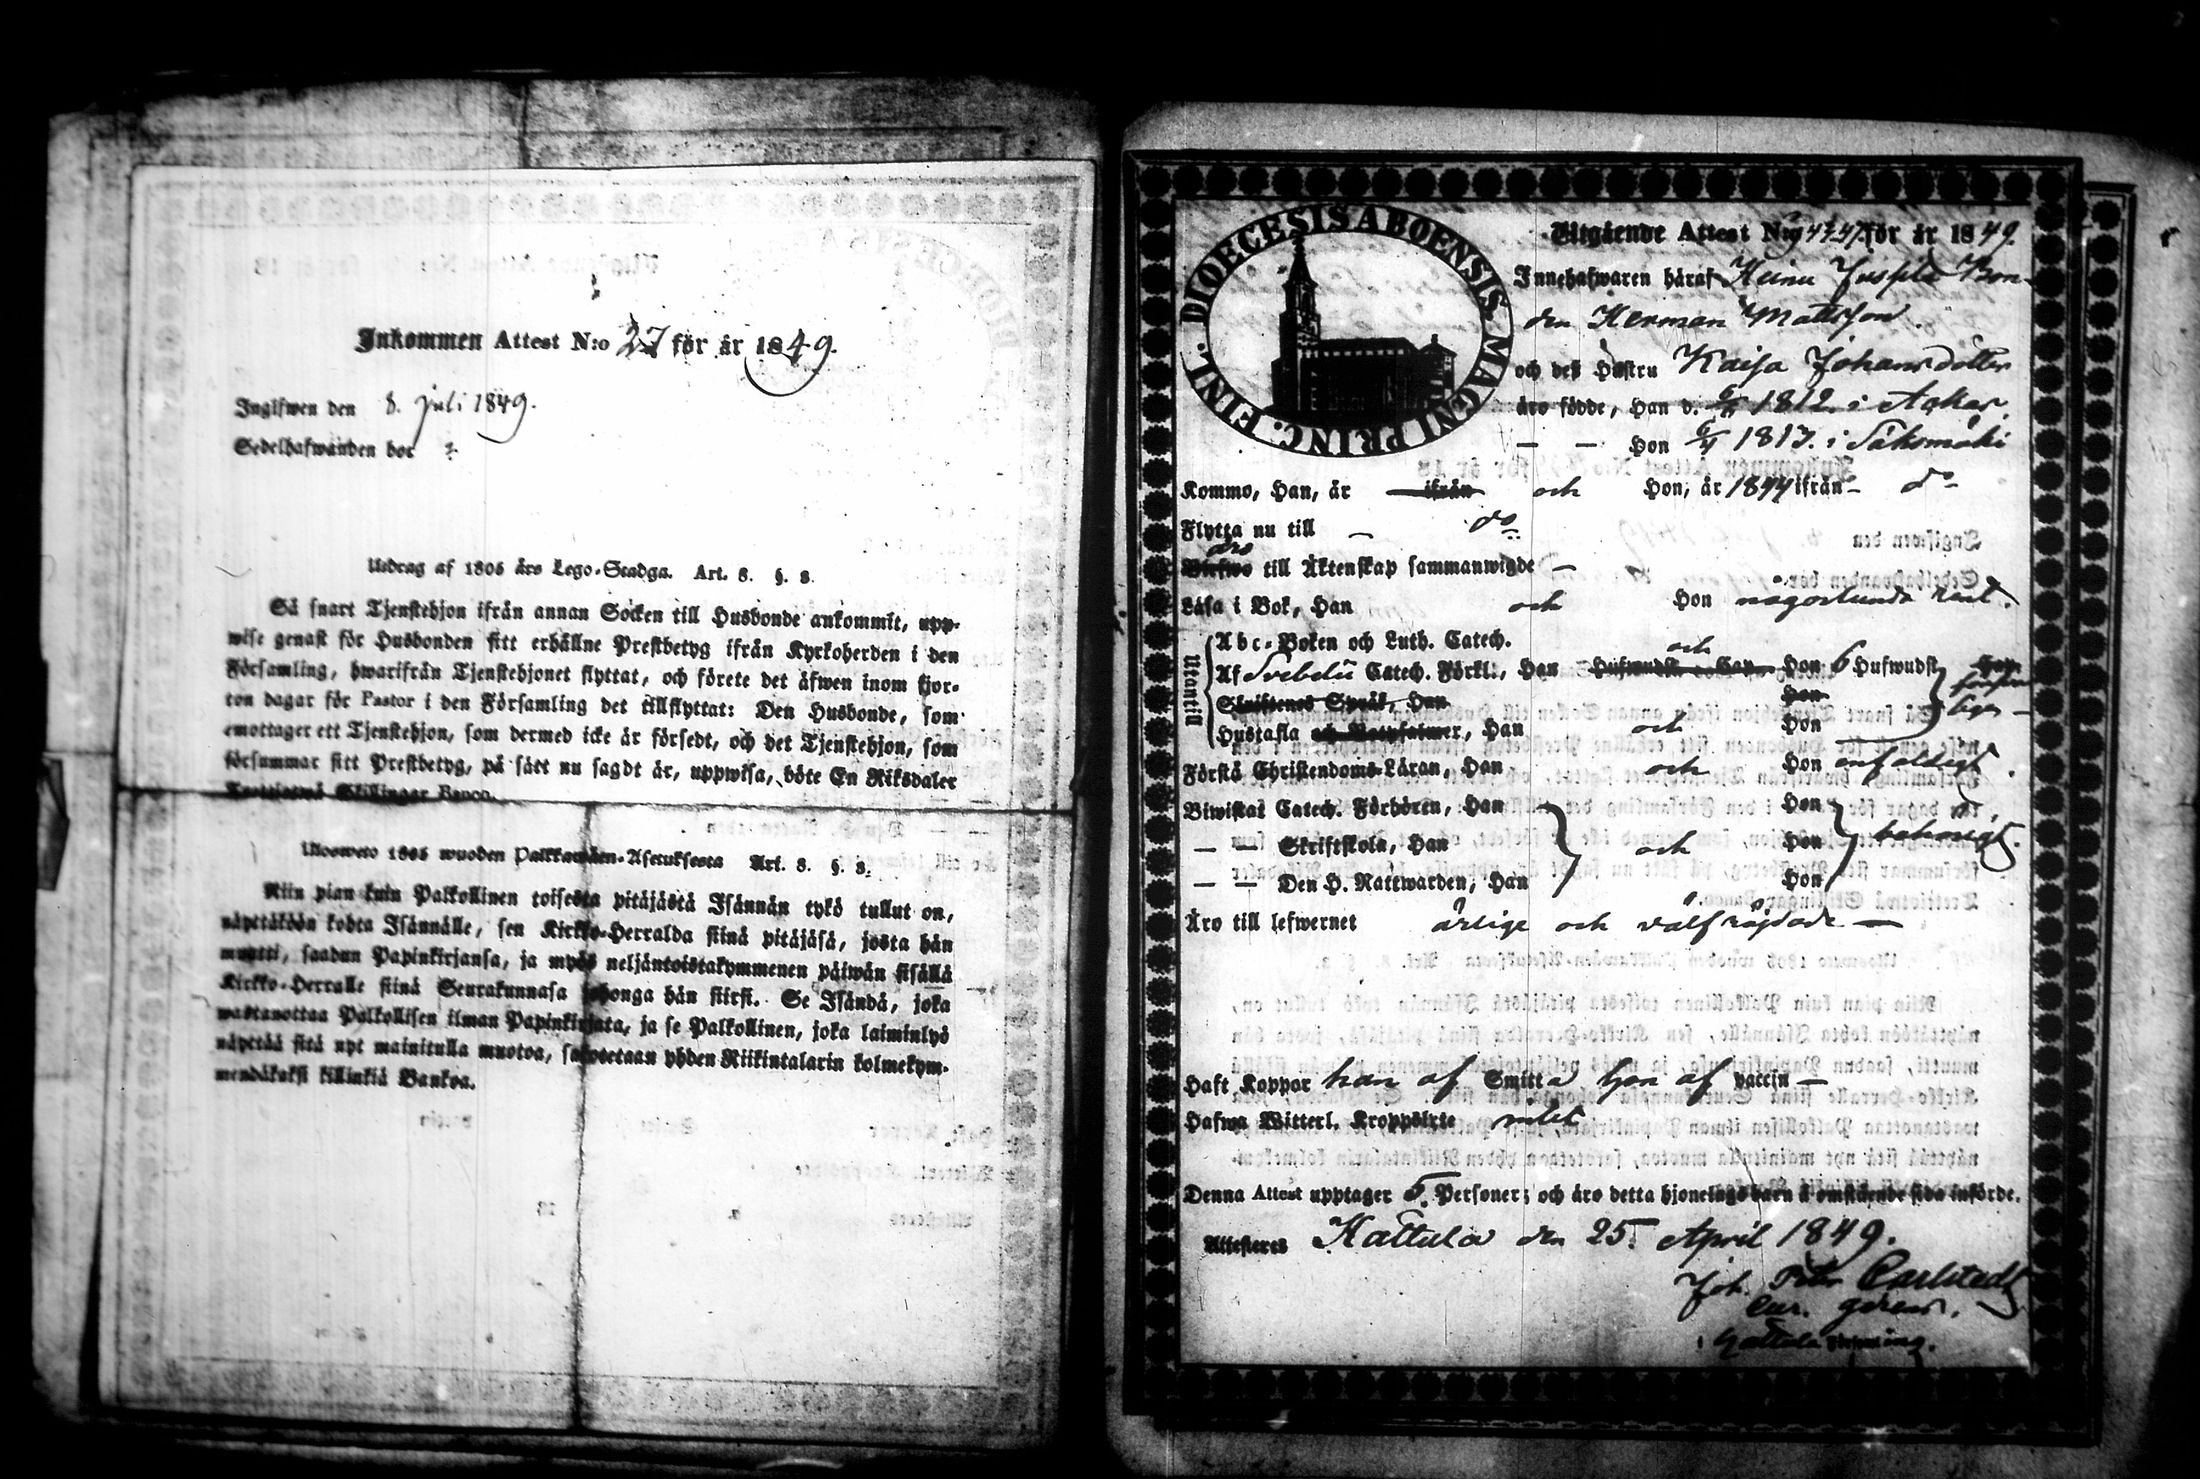 Inkommen Attest N:o 27 för år 1849.
Ingifwen den 8. juli 1849.
Sedelhafwanden bor ?
Utdrag af 1805 års Lego-Stadga. Art. 8. §. 8.
Så snart Tjenstehjon ifrån annan Socken till Husbonde ankommit, upp-
wise genast för Husbonden sitt erhållne Prestbetyg ifrån Kyrkoherden i den
Församling, hwarifrån Tjenstehjonet flyttat, och förete det äfwen inom fjor-
ton dagar för Pastor i den Församling det tillflyttat: Den Husbonde, som
emottager ett Tjenstehjon, som dermed icke är försedt, och det Tjenstehjon, som
försummar sitt Prestbetyg, på sätt nu sagdt är, uppwisa, böte En Riksdaler
Trettiotwå Skillingar Banco.
Ulosweto 1805 wuoden Palkkawäen-Asetuksesta Art. 8. §. 8.
Niin pian kuin Palkollinen toisesta pitäjästä Isännän tykö tullut on,
näyttäköön kohta Isännälle, sen Kirkko-Herralda siinä pitäjäsä, josta hän
muutti, saadun Papinkirjansa, ja myös neljäntoistakymmenen päiwän sisällä
Kirkko-Herralle siinä Seurakunnasa johonga hän siirsi. Se Isändä, joka
wastanottaa Palkollisen ilman Papinkirjata, ja se Palkollinen, joka laiminlyö
näyttää sitä nyt mainitulla muotoa, sakotetaan yhden Riikintalarin kolmekym-
mendäkaksi killinkiä Bankoa.
DIOECESIS ABOENSIS MAGNI PRINC. FINL.
Utgående Attest N:o för år 1849.
Innehafwaren häraf Heinu Juspila Bon-
den Herman Mattsson.
och dess Hustru Kaisa Johansdotter
äro födde, Han d. 1812 i Acker
— — Hon 1813. i Säksmäki
Kommo, Han, år ifrån och Hon, år 1844 ifrån do
Flytta nu till — do
äro
till Äktenskap sammanwigde —
Läsa i Bok, Han och Hon någorlunda rent.
Utantill
Abc-Boken och Luth. Catech.
och
Af Svebelii Catech. Förkl., Han Hon 6 Hufwudst
Skriftenes Språk, Han Hon
Hustafla, Han och Hon
Förstå Christendoms-Läran, Han och Hon enfaldigt.
Biwistat Catech. Förhören, Han Hon
— — Skriftskola, Han och Hon behörigt.
— — Den H. Nattwarden, Han Hon
Äro till lefwernet ärlige och välfräjdade —
Haft Koppor han af Smitta hon af vaccin —
Hafwa Witterl. Kroppslyte intet
Denna Attest upptager 5. Personer; och äro detta hjonelags barn å omstående sida införde.
Attesteres Hattula den 25. April 1849.
Joh. Petter Carlstedt
i Hattula Församling.